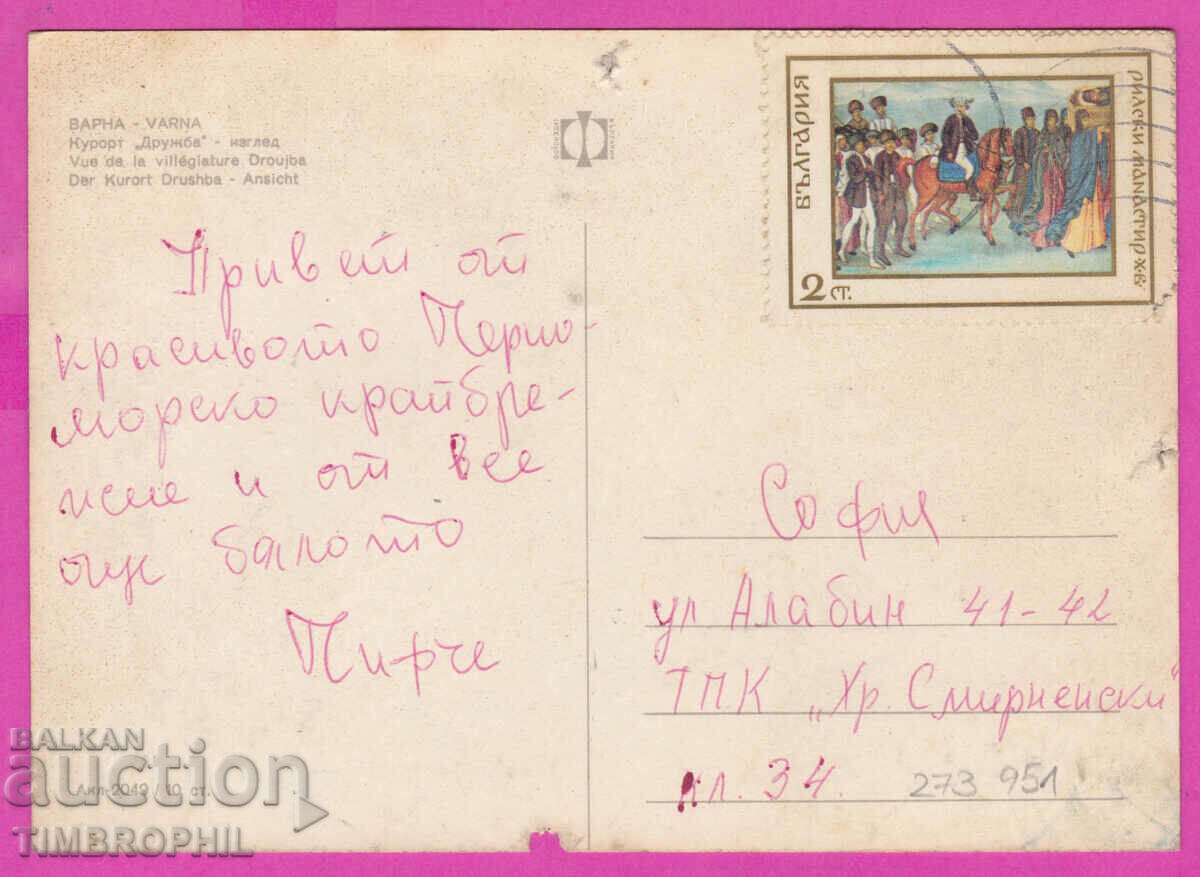 ВАРНА - VARNA
Курорт „Дружба" - изглед
Vue de la villégiature Droujba
Der Kurort Drushba - Ansicht
БЪЛГАРИЯ
РИЛСКИ МАНАСТИР
2 СТ.
Привет от
красивото Черно-
морско крайбре-
жие и от все
още бялото
Чирче
София
ул Алабин 41-42
ТПК „Хр. Смирненски"
кл. 34.
273 951
Акл-2049 / 10 ст.
BALKAN
auction
TIMBROPHIL